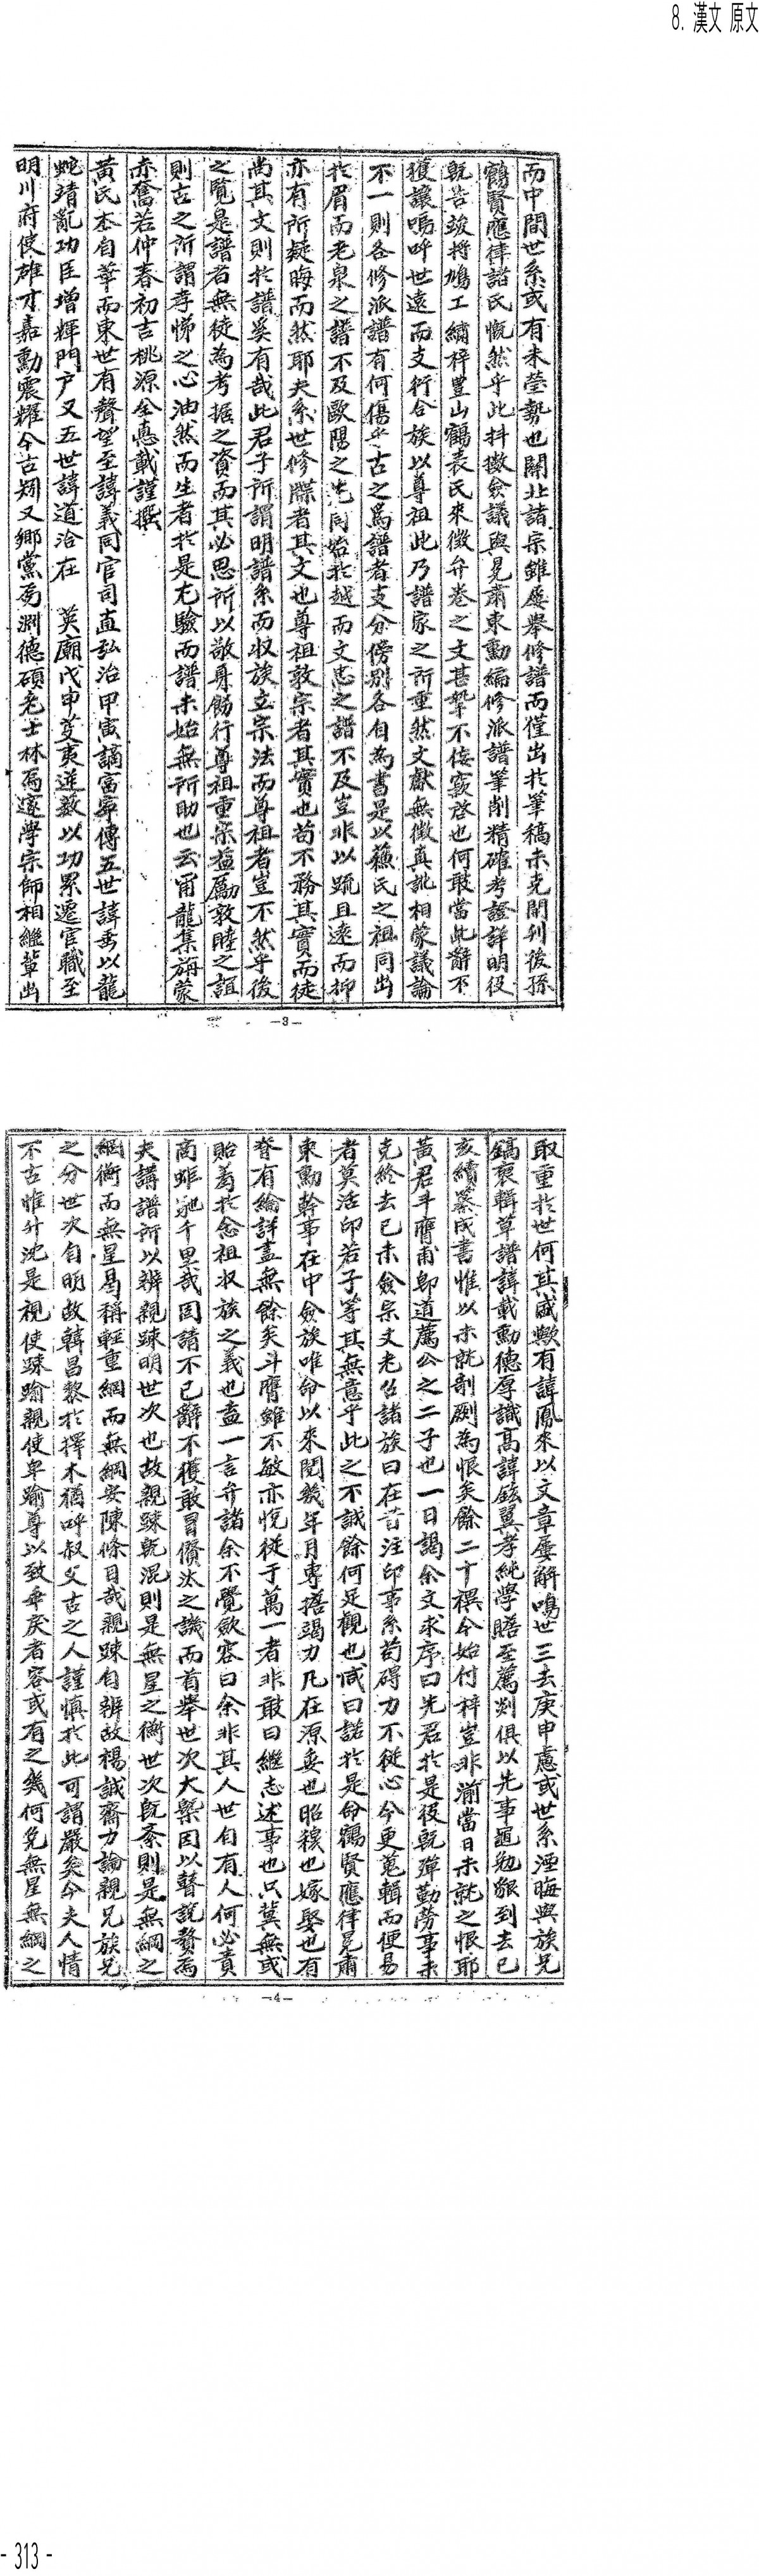 8. 漢文 原文
而中間世系或有未瑩勢也關北諸宗雖屢擧修譜而僅出於筆稿未克開刊後孫
鶴賢應律諸氏慨然乎此抖擻僉議與晃肅東勳編修派譜筆削精確考證詳明役
旣告竣將鳩工繡梓豊山鶴表氏來徵弁卷之文甚摯不侫窾啓也何敢當此辭不
獲讓嗚呼世遠而支衍合族以尊祖此乃譜家之所重然文獻無徵眞訛相蒙議論
不一則各修派譜有何傷乎古之爲譜者支分傍別各自為書是以蘓氏之祖同出
於眉而老泉之譜不及歐陽之先同始於越而文忠之譜不及豈非以疏且遠而抑
亦有所疑晦而然耶夫系世修牒者其文也尊祖敦宗者其實也苟不務其實而徒
尚其文則於譜奚有哉此君子所謂明譜系而收族立宗法而尊祖者豈不然乎後
之覽是譜者無徒為考据之資而其必思所以敬身飭行尊祖重宗益勵敦睦之誼
則古之所謂孝悌之心油然而生者於是尤驗而譜未始無所助也云甭龍集旃蒙
赤奮若仲春初吉桃源全悳載謹撰
黃氏本自華而東世有聲望至諱義同官司直弘治甲寅謫富寧傳五世諱禹以龍
蛇靖亂功臣增輝門户又五世諱道洽在 英廟戊申芟夷逆數以功累遷官職至
明川府使雄才嘉勳震耀今古矧又鄕黨爲淵德碩老士林爲邃學宗師相繼輩出
-3-
取重於世何其盛歟有諱鳳來以文章屢解鳴世三去庚申慮或世系湮晦與族兄
鎬裒輯草譜諱載勳德厚識高諱鉉翼孝純學贍至薦剡俱以先事黽勉艱到去己
亥續纂成書惟以未就剞劂為恨矣餘二十禩今始付梓豈非湔當日未就之恨耶
黃君斗膺甫郞道薦公之二子也一日謁余文求序曰先君於是役旣殫勤勞事未
克終去己未僉宗丈老召諸族曰在昔注印事系苟碍力不從心今更蒐輯而便易
者莫活印若子等其無意乎此之不誠餘何足觀也咸曰諾於是命鶴賢應律晃肅
東勳幹事在中僉族唯命以來閱幾年月專搭竭力凡在源委也昭穆也嫁娶也有
脊有綸詳盡無餘矣斗膺雖不敏亦悅從于萬一者非敢曰繼志述事也只冀無或
貽羞於念祖收族之義也盍一言弁諸余不覺歛容曰余非其人世自有人何必責
商蚷馳千里哉固請不已辭不獲敢冒儹汰之譏而首擧世次大槩因以瞽說贅焉
夫講譜所以辨親踈明世次也故親踈旣混則是無星之衡世次旣紊則是無綱之
網衡而無星曷稱輕重網而無綱安陳條目哉親踈自辨故楊誠齋力論親兄族兄
之分世次自明故韓昌黎於擇木猶呼叔父古之人謹愼於此可謂嚴矣今夫人情
不古惟升沈是視使踈踰親使卑踰尊以致乖戾者容或有之幾何免無星無綱之
-4-
- 313 -